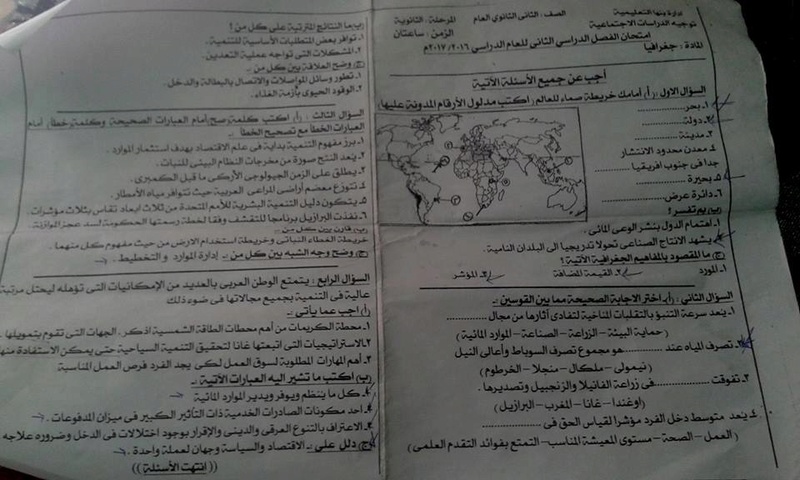 إدارة بنها التعليمية
توجيه الدراسات الاجتماعية
الصف : الثانى الثانوى العام
المرحلة : الثانوية
امتحان الفصل الدراسي الثانى للعام الدراسي ٢٠١٦/ ٢٠١٧م
المادة : جغرافيا
الزمن : ساعتان
أجب عن جميع الأسئلة الآتية
السؤال الاول :(أ) أمامك خريطة صماء للعالم ( اكتب مدلول الأرقام المدونة عليها)
١. بحر............
٢. دولة ............
٣. مدينة ............
٤. معدن محدود الانتشار
جدا فى جنوب افريقيا ............
٥. بحيرة ............
٦. دائرة عرض............
(ب) بم تفسر ؟
١. اهتمام الدول بنشر الوعى المائى .
٢. يشهد الانتاج الصناعى تحولا تدريجيا الى البلدان النامية .
(ج) ما المقصود بالمفاهيم الجغرافية الآتية ؟
١. المورد ٢. القيمة المضافة ٣. المؤشر
السؤال الثانى :(أ) اختر الاجابة الصحيحة مما بين القوسين :-
١. يعد سرعة التنبؤ بالتقلبات المناخية لتفادى آثارها من مجال ............
(حماية البيئة – الزراعة – الصناعة – الموارد المائية )
٢. تصرف المياه عند ............ هو مجموع تصرف السوباط وأعالى النيل
(نيمولى – ملكال – منجلا – الخرطوم)
٣. تفوقت ............ فى زراعة الفانيلا والزنجبيل وتصديرها .
(اوغندا – غانا – المغرب – البرازيل)
٤. يعد متوسط دخل الفرد مؤشرا لقياس الحق فى ............
(العمل – الصحة – مستوى المعيشة المناسب – التمتع بفوائد التقدم العلمى)
(ب) ما النتائج المترتبة على كل من ؟
١. توافر بعض المتطلبات الأساسية للتنمية .
٢. المشكلات التى تواجه عملية التعدين .
(ج) وضح العلاقة بين كل من :-
١. تطور وسائل المواصلات والاتصال بالبطالة والدخل.
٢. الوقود الحيوى بأزمة الغذاء .
السؤال الثالث : (أ) اكتب كلمة صح أمام العبارات الصحيحة وكلمة خطأ أمام
العبارات الخطأ مع تصحيح الخطأ :-
١. برز مفهوم التنمية بداية فى علم الاقتصاد بهدف استثمار الموارد .
٢. يعد النتح صورة من مخرجات النظام البيئى للنبات .
٣. يطلق على الزمن الجيولوجى الأركى ما قبل الكمبرى .
٤. تتوزع معظم أراضى المراعى العربية حيث تتوافر مياه الأمطار .
٥. يتكون دليل التنمية البشرية للأمم المتحدة من ثلاث ابعاد تقاس بثلاث مؤشرات .
٦. نفذت البرازيل برنامجا للتقشف وفقا لخطة رسمتها الحكومة لسد عجز الموازنة
(ب) قارن بين كل من :-
خريطة الغطاء النباتى وخريطة استخدام الارض من حيث مفهوم كل منهما .
(ج) وضح وجه الشبه بين كل من :- إدارة الموارد و التخطيط .
السؤال الرابع : يتمتع الوطن العربى بالعديد من الإمكانيات التى تؤهله ليحتل مرتبة
عالية فى التنمية بجميع مجالاتها فى ضوء ذلك
(أ) اجب عما يأتى :-
١. محطة الكريمات من أهم محطات الطاقة الشمسية اذكر . الجهات التى تقوم بتمويلها .
٢. الاستراتيجيات التى اتبعتها غانا لتحقيق التنمية السياحية حتى يمكن الاستفادة منها
٣. أهم المهارات المطلوبة لسوق العمل لكى يجد الفرد فرص العمل المناسبة
(ب) اكتب ما تشير اليه العبارات الآتية :-
١. كل ما ينظم ويوفر ويدير الموارد المائية
٢. احد مكونات الصادرات الخدمية ذات التأثير الكبير فى ميزان المدفوعات .
٣. الاعتراف بالتنوع العرقى والدينى والإقرار بوجود اختلالات فى الدخل وضروره علاجه
(ج) دلل على :- الاقتصاد والسياسة وجهان لعملة واحدة .
(( انتهت الأسئلة ))